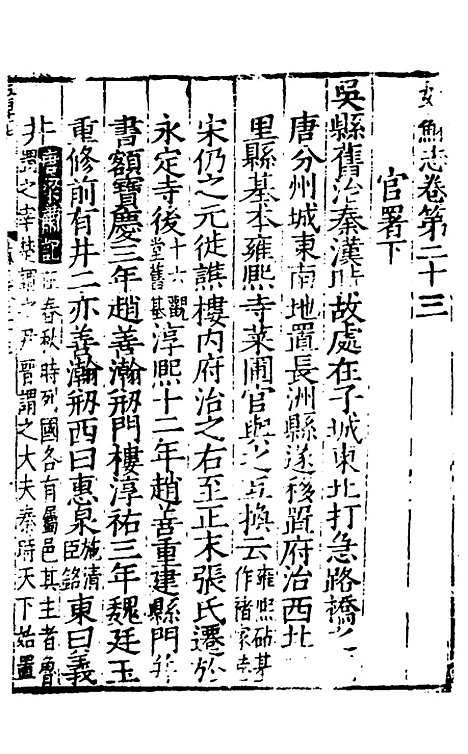 姑蘇志卷第二十三
官署下
吳縣舊治秦漢時故處在子城東北打急路橋
唐分州城東南地置長洲縣遂移置府治西北
里縣基本雍熙寺菜圃官與之互換云雍熙砧基作褚家
宋仍之元徙譙樓內府治之右至正末張氏遷於
永定寺後十六觀堂舊基淳熙十二年趙善重建縣門
書額寶慶三年趙善瀚剏門樓淳祐三年魏廷玉
重修前有井二亦善瀚剏西曰惠泉施清臣銘東曰義
井唐梁肅記 春秋時列國各有屬邑其主者魯
謂之宰楚謂之尹晉謂之大夫秦時天下始置